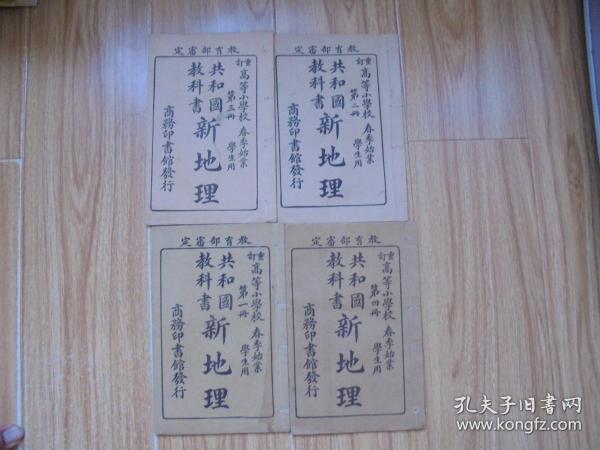 教育部審定
重訂高等小學校 春季始業 學生用
共和國教科書
新地理
第三冊
商務印書館發行
教育部審定
重訂高等小學校 春季始業 學生用
共和國教科書
新地理
第二冊
商務印書館發行
教育部審定
重訂高等小學校 春季始業 學生用
共和國教科書
新地理
第一冊
商務印書館發行
教育部審定
重訂高等小學校 春季始業 學生用
共和國教科書
新地理
第四冊
商務印書館發行
孔夫子旧书网
www.kongfz.com